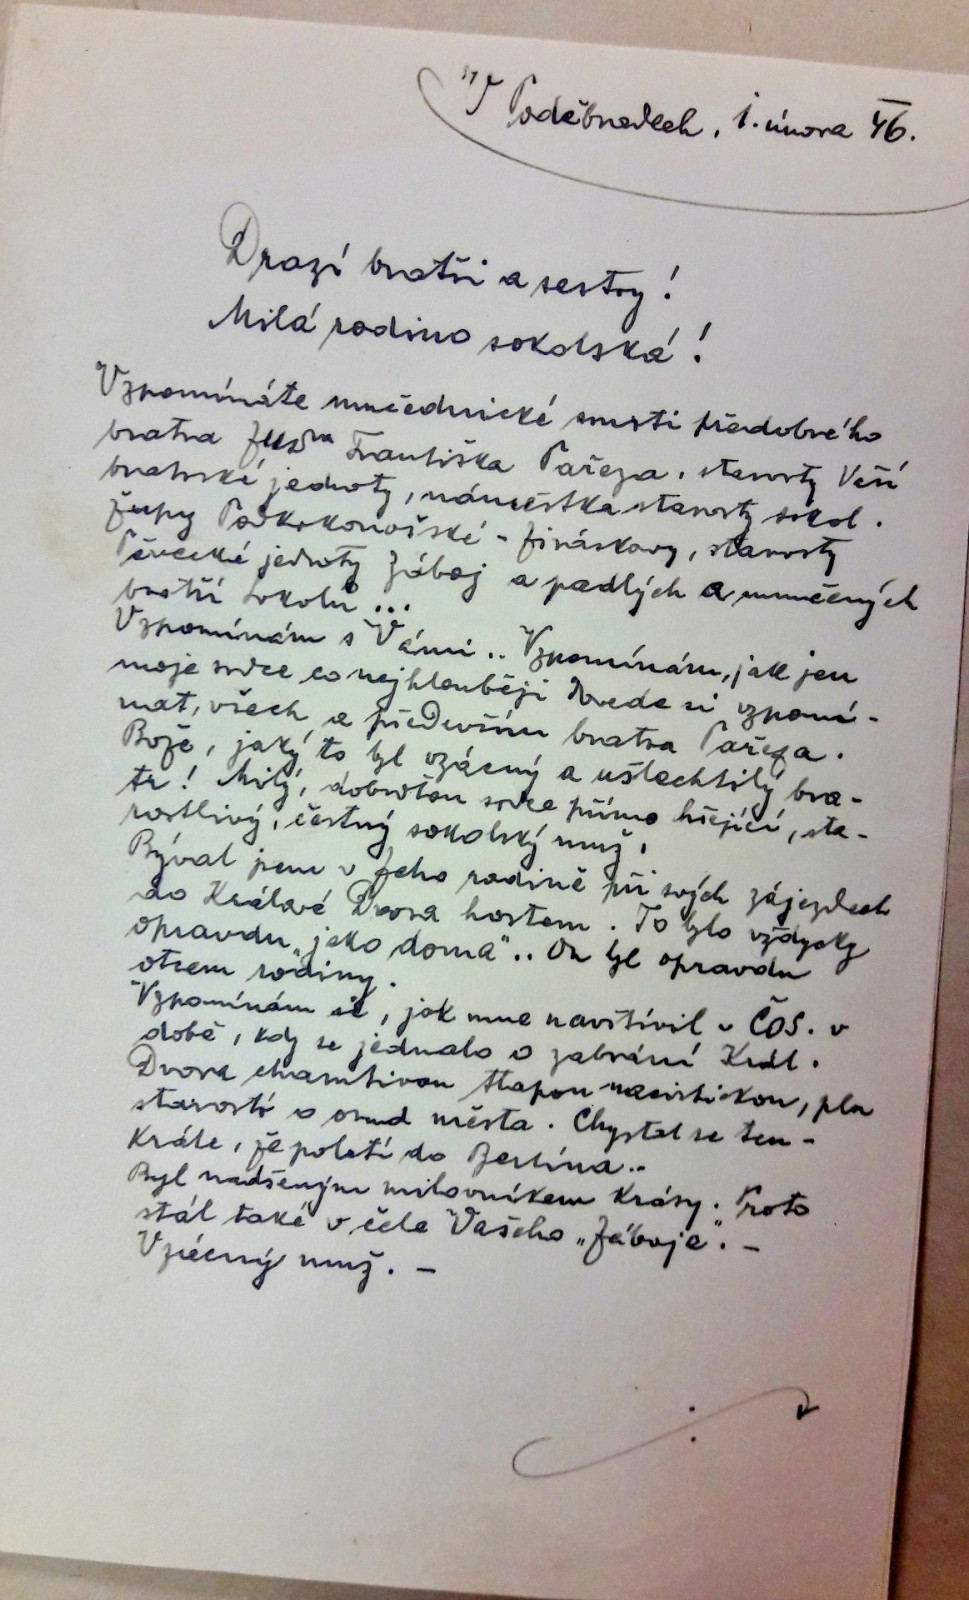 V Poděbradech, 1. února 46.
Drazí bratři a sestry!
Milá rodino sokolská!
Vzpomínáte mučednické smrti předobrého
bratra JUDra Františka Pařeza, starosty Vaší
bratrské jednoty, náměstka starosty sokol.
župy Podkrkonošské - Jiráskovy, starosty
Pěvecké jednoty Záboj a padlých a umučených
bratří Sokolů ...
Vzpomínám s Vámi .. Vzpomínám, jak jen
moje srdce co nejhlouběji dovede si vzpomí-
nat, všech, a především bratra Pařeza.
Bože, jaký to byl vzácný a ušlechtilý bra-
tr! Milý, dobrotou srdce přímo hřející, sta-
rostlivý, čestný sokolský muž.
Býval jsem v Jeho rodině při svých zájezdech
do Králové Dvora hostem. To bylo vždycky
opravdu „jako doma".. On byl opravdu
otcem rodiny.
Vzpomínám si, jak mne navštívil v ČOS. v
době, kdy se jednalo o zabrání Král.
Dvora chamtivou tlapou nacistickou, pln
starostí o osud města. Chystal se ten-
kráte, že poletí do Berlína..
Byl nadšeným milovníkem krásy. Proto
stál také v čele Vašeho „Záboje". -
Vzácný muž. -